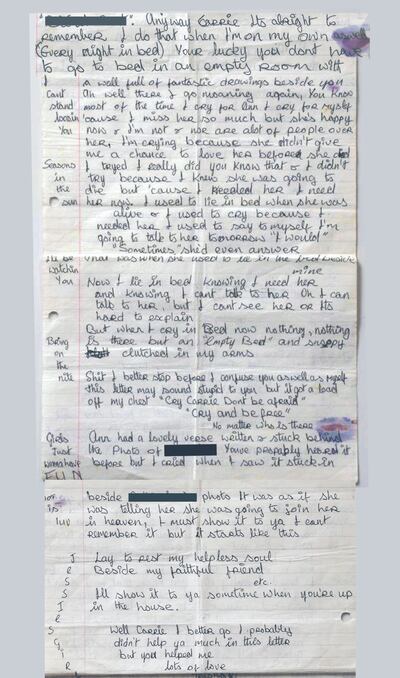 Anyway Carrie Its alright to
remember I do that when I'm on my own aswell
(Every night in bed) Your lucky you dont have
to go to bed in an empty room with
a wall full of fantastic drawings beside you
Cant Ah well there I go moaning again, You know
stand most of the time I cry for Ann I cry for myself
loosin 'cause I miss her so much but she's happy
You now & I'm not & nor are alot of people over
her, I'm crying because she didn't give
me a chance to love her before she died
Seasons I tryed I really did you know that & I didn't
in try because I knew she was going to
the die but 'cause I needed her, I need
sun her now. I used to lie in bed when she was
alive & I used to cry because I
needed her I used to say to myself I'm
going to talk to her tomorrow "I would"
"Sometimes" she'd even answer
I'll be that was when she used to lie in the bed beside
watchin mine
You Now I lie in bed knowing I need her
and knowing I cant talk to her Oh I can
talk to her, but I cant see her or its
hard to explain
But when I cry in Bed now nothing, nothing
Being is there but an "Empty Bed" and snoopy
on clutched in my arms
the
nite Shit I better stop before I confuse you aswell as myself
this letter may sound stupid to you but it got a load
off my chest "Cry Carrie Dont be afraid"
"Cry and be free"
No matter who is there
Girls Ann had a lovely verse written & stuck behind
Just the Photo of Youve probably heard it
wannahave before but I cried when I saw it stuck in
FUN
beside photo It was as if she
is was telling her she was going to join her
luv in heaven, I must show it to ya I cant
remember it but it starts like this
I Lay to rest my helpless soul
R Beside my faithful friend
S etc.
S I'll show it to ya sometime when you're up
I in the house.
R
S Well Carrie I better go I probably
G didn't help ya much in this letter
I but you helped me
R lots of love